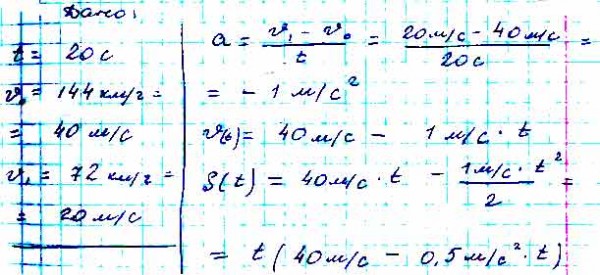 Дано:
t = 20 с
v₀ = 144 км/ч =
= 40 м/с
v₁ = 72 км/ч =
= 20 м/с
a = (v₁ - v₀)/t = (20 м/с - 40 м/с)/20 с =
= - 1 м/с²
v(t) = 40 м/с - 1 м/с · t
S(t) = 40 м/с · t - (1 м/с · t²)/2 =
= t (40 м/с - 0,5 м/с² · t)